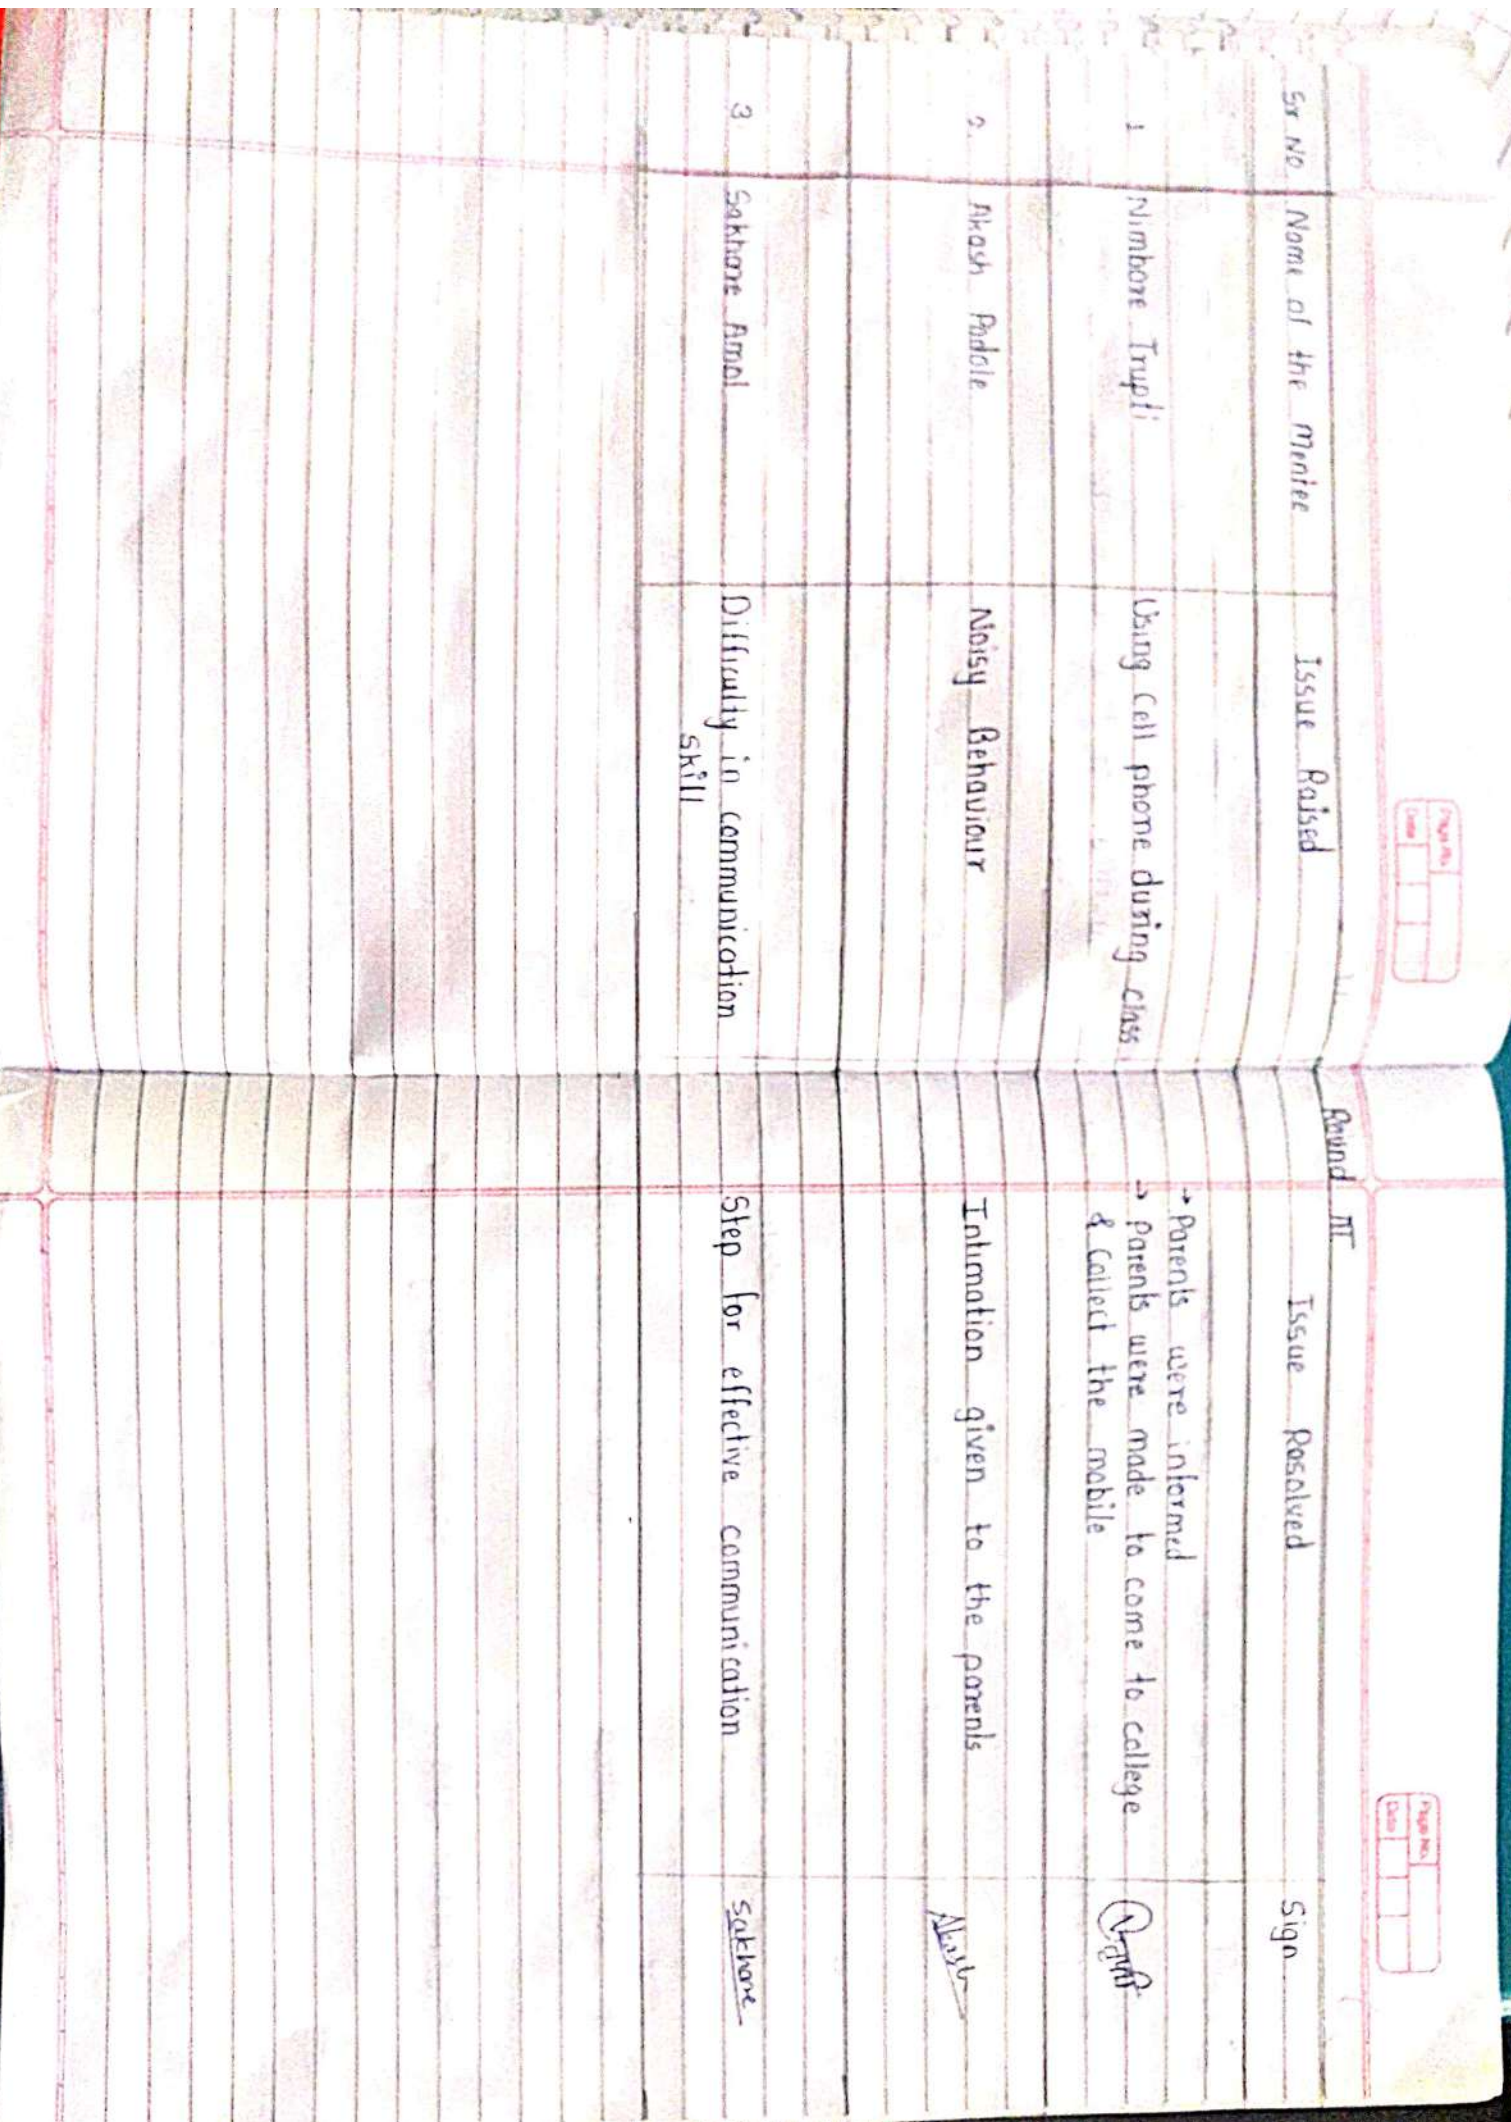 Page No.
Date
Page No.
Date
Round III
Sr No Name of the Mentee Issue Raised Issue Resolved Sign
→ Parents were informed
1 Nimbore Trupti Using Cell phone during class → Parents were made to come to college
& Collect the mobile
2. Akash Padole Noisy Behaviour Intimation given to the parents Akash
3 Sakhare Amol Difficulty in communication Step for effective communication Sakhare
skill